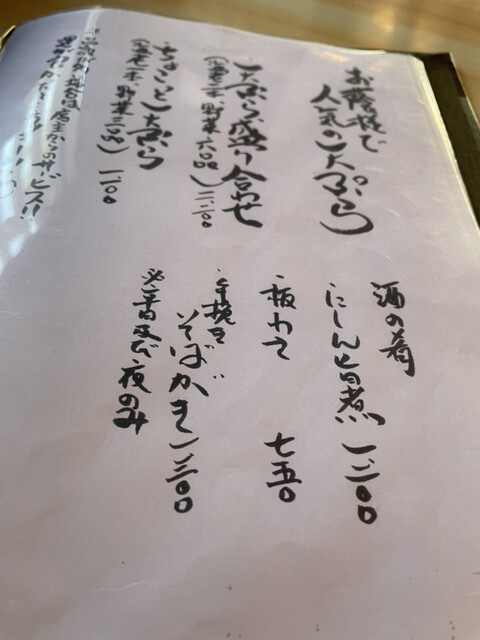 お蔭様で
人気の天ぷら
天ぷら盛り合わせ
(海老二本 野菜六品) 二、二〇〇
ちょこっと天ぷら
(海老一本 野菜三品) 一、一〇〇
店主からのサービス!!
酒の肴
にしん旨煮 一、二〇〇
板わさ 七五〇
手挽き
そばがき 一、三〇〇
※平日及び夜のみ